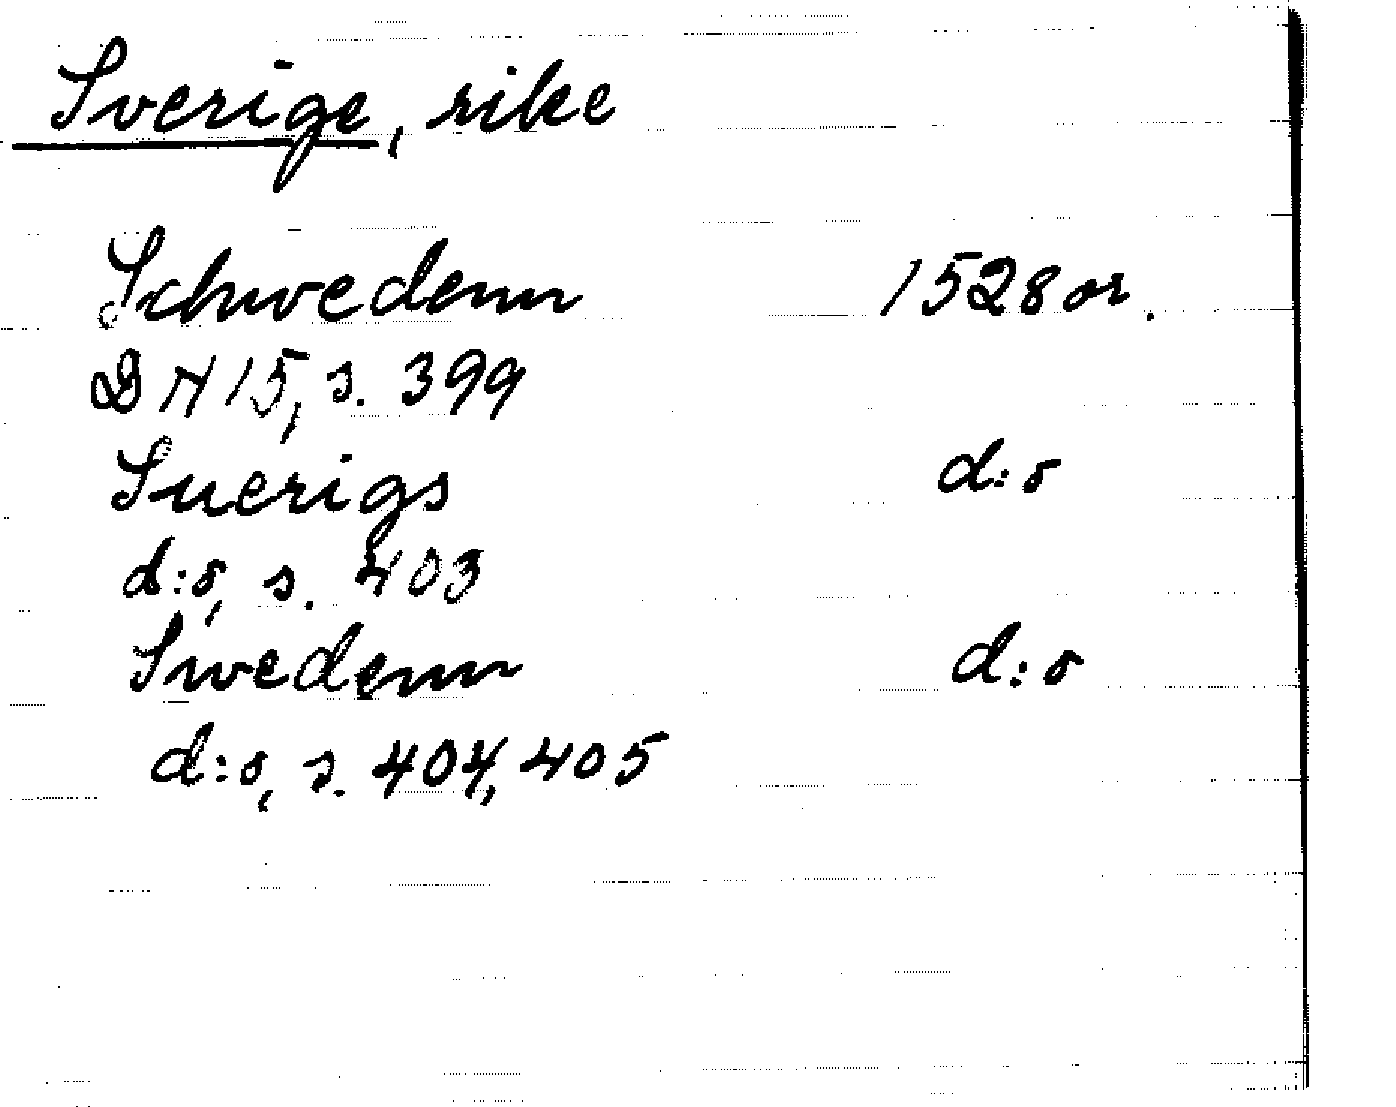 Sverige, rike
Schwedenn 1528 or.
DN 15, s. 399
Suerigs d:o
d:o, s. 403
Swedenn d:o
d:o, s. 404, 405